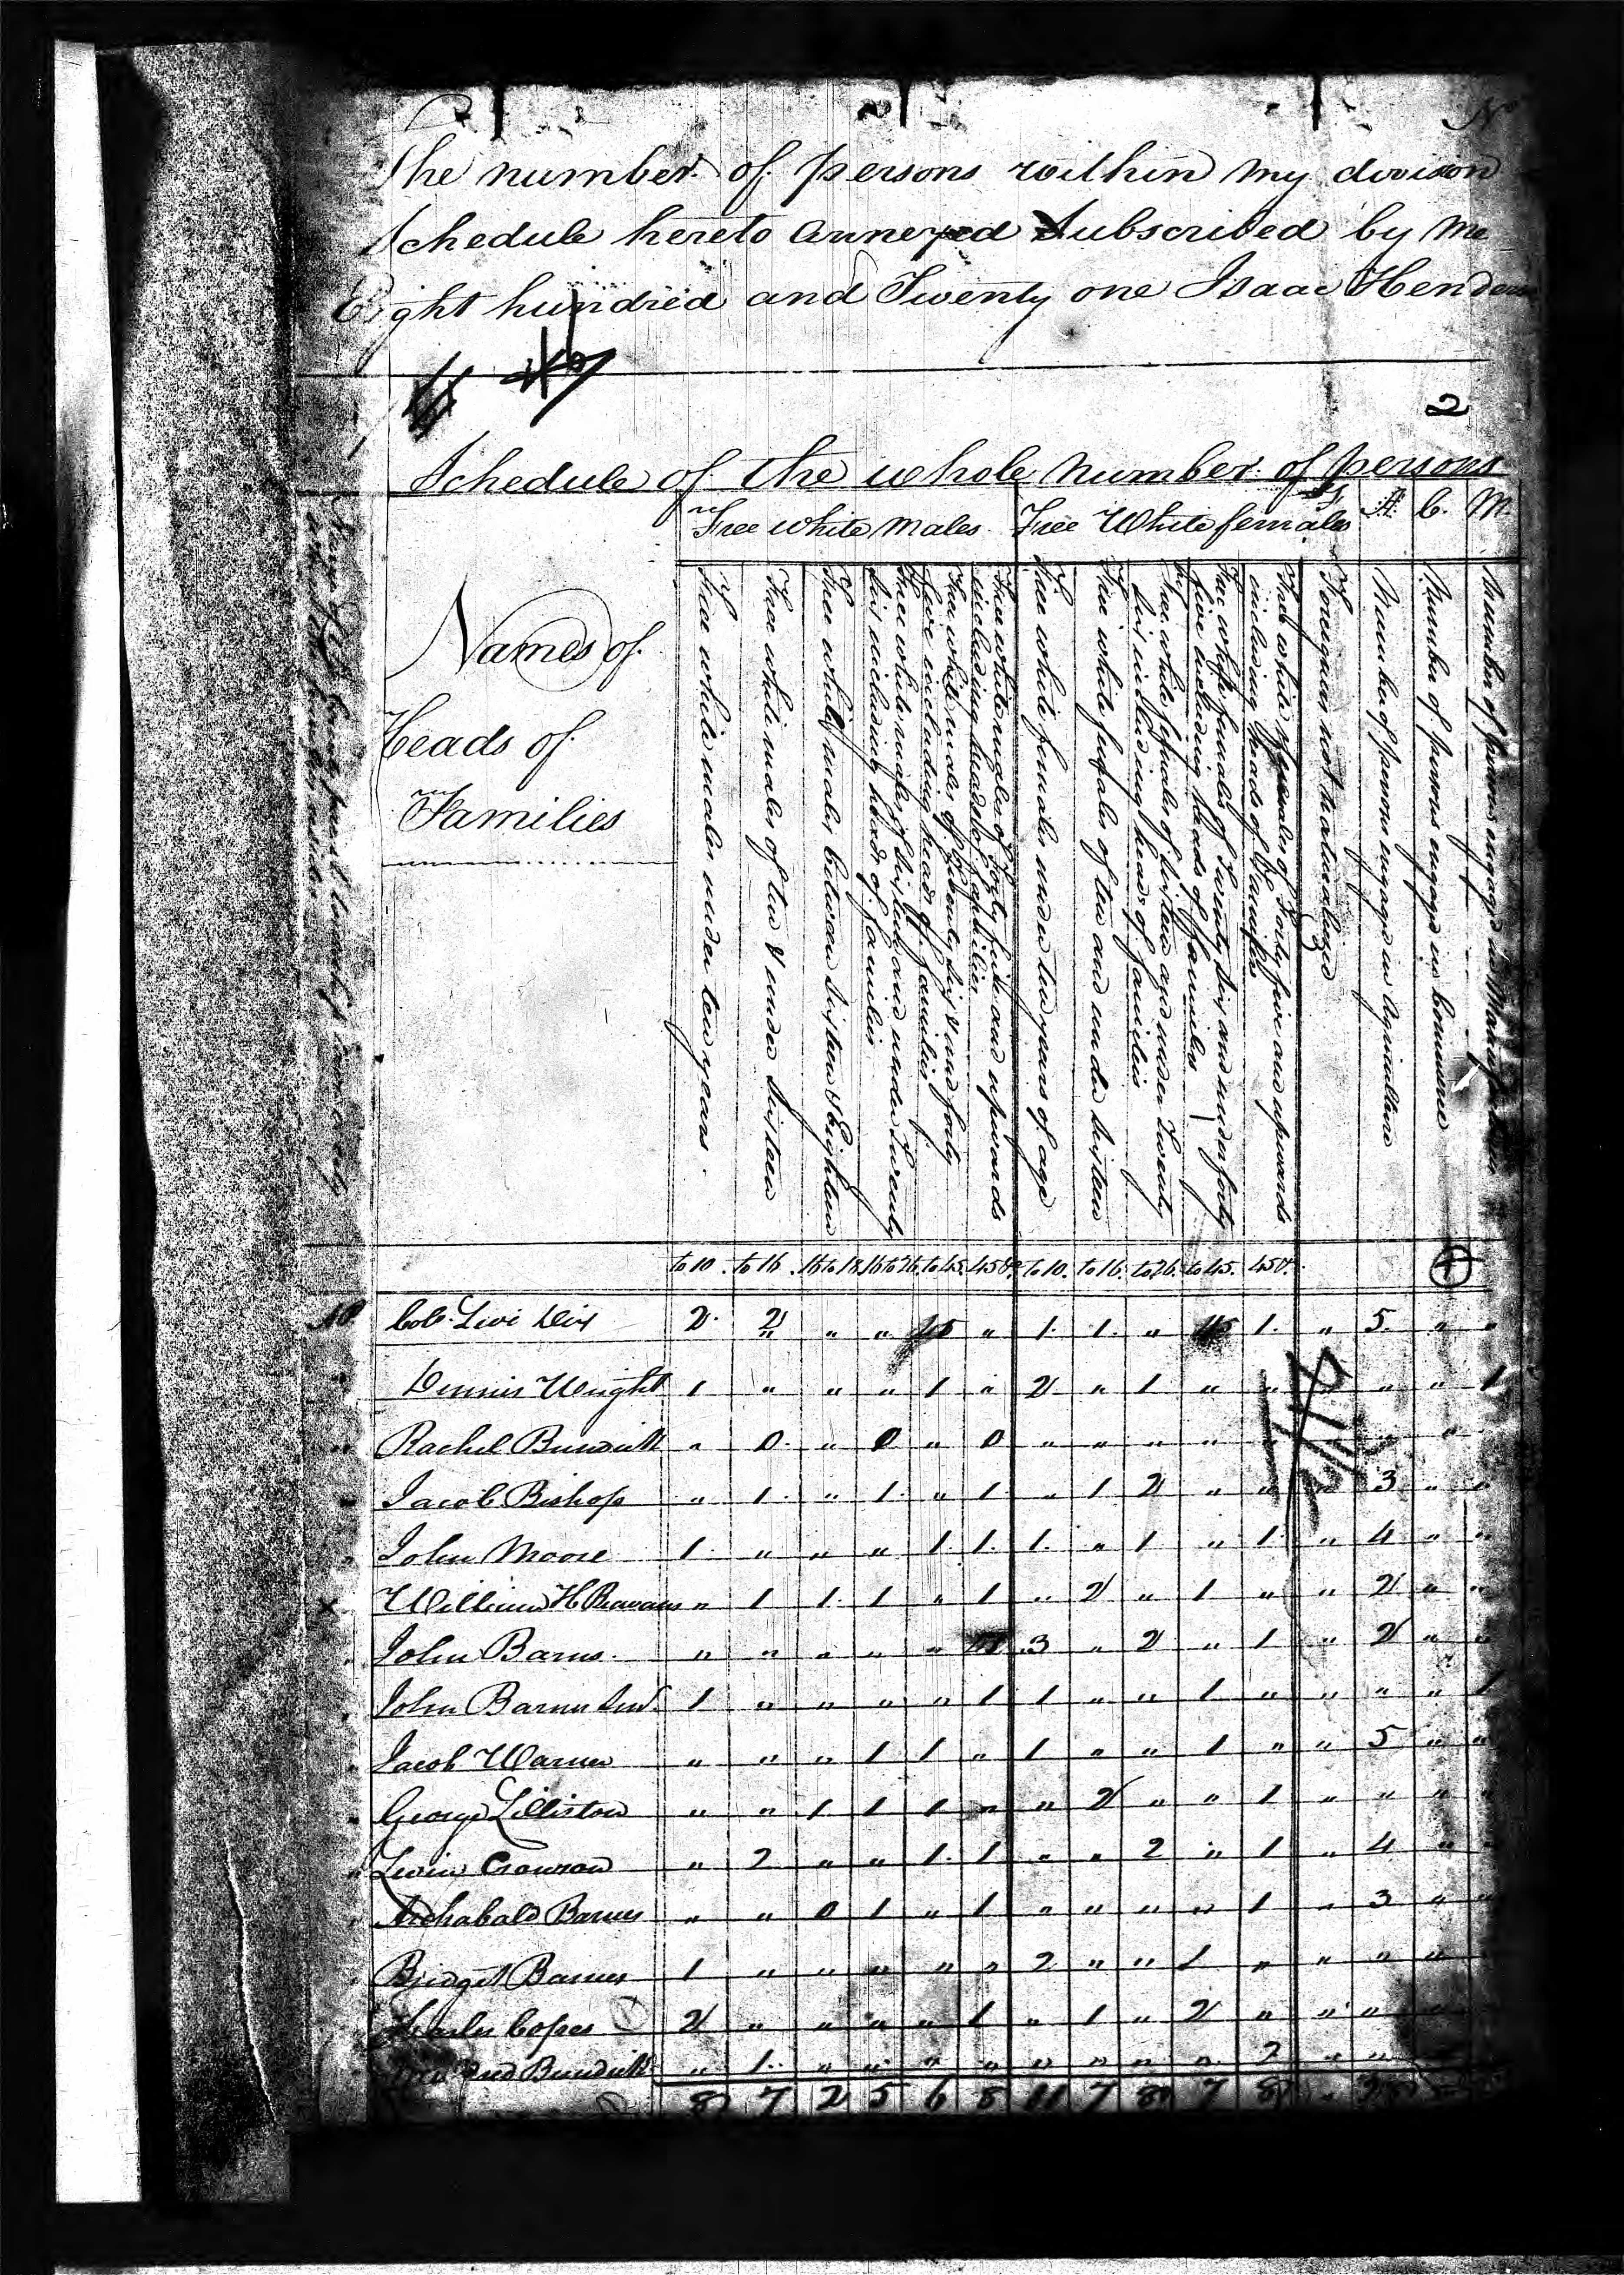 The number of persons within my division
Schedule hereto annexed Subscribed by me
Eight hundred and Twenty one Isaac Henders
2
Schedule of the whole number of persons
Free white males. Free White females A. C. M.
Names of
Heads of
Families
Free white males under ten years.
Free white males of ten & under sixteen
Free white males between sixteen & Eighteen
Free white males of sixteen and under twenty
six including heads of families
Free white males of twenty six & und forty
five including heads of families
Free white males of forty five and upwards
including heads of families
Free white females under ten years of age
Free white females of ten and under sixteen
Free white females of sixteen and under twenty
six including heads of families
Free white females of twenty six and under forty
five including heads of families
Free white females of forty five and upwards
including heads of Families
Foreigners not naturalized
Number of persons engaged in Agriculture
Number of persons engaged in Commerce
Number of persons engaged in
to 10. to 16. 16 to 18. 16 to 26. to 45. 45 &c. to 10. to 16. to 26. to 45. 45 &.
Col. Levi Dix 2. 2 " " " 1. 1. " 1. " 5. " "
Dennis Wright 1 " " " 1 " 2 " 1 " " " " " 1
Rachel 0. " 0 " 0 " " " " " " "
Jacob Bishop " 1. " 1. " 1. " 1 2 " " " 3 " "
John Moore 1. " " " 1. 1. 1. " 1 " 1. " 4 " "
William H Beavans " 1 1. 1 " 1 " 2 " 1 " " 2 " "
John Barns. " " " " " 3 " 2 " 1 " 2 " "
John Barns 1 " " " " 1 1 " " 1 " " " " 1
Jacob Warner " " " 1 1 " 1 " " 1 " " 5 " "
George Lilliston " " 1. 1 1 " " 2 " " 1 " " " "
Levin Crowson " 2 " " 1. 1 " " 2 " 1 " 4 "
Archabald Barnes " " 0 1 " 1 " " " " 1 " 3 " "
Bridget Barnes 1 " " " " " 2 " " 1 " " " "
Copes 2 " " " " 1 " 1 " 2 " " "
" 1. " " " " " " " " 2 " "
8 7 2 5 6 8 11 7 8 7 8 "